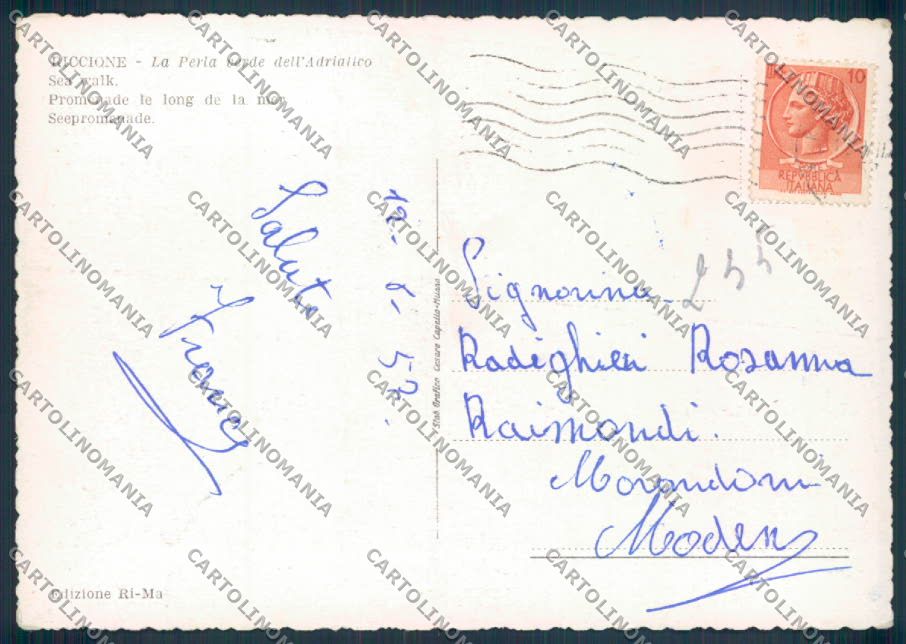 RICCIONE - La Perla verde dell'Adriatico
Sea walk.
Promenade le long de la mer
Seepromenade.
10
REPVBBLICA
ITALIANA
Saluti
Franco
Stab Grafico Cesare Capello-Milano
Signorina
Radighieri Rosanna
Raimondi.
Morandoni
Modena
Edizione Ri-Ma
CARTOLINOMANIA